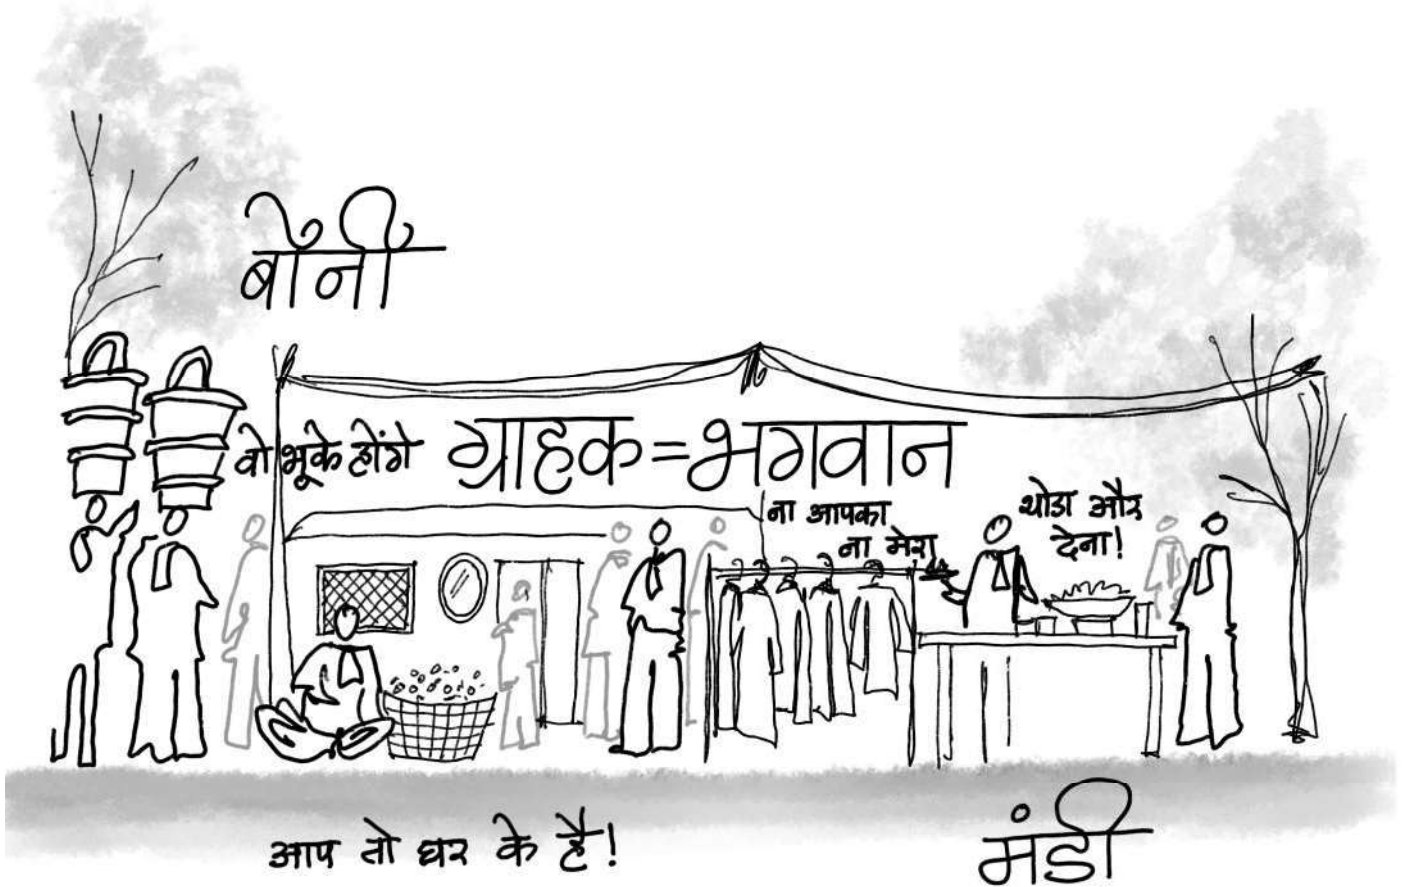 बोंनी
वो भूके होंगे
ग्राहक=भगवान
ना आपका
ना मेरा
थोडा और
देना!
आप तो घर के है!
मंडी